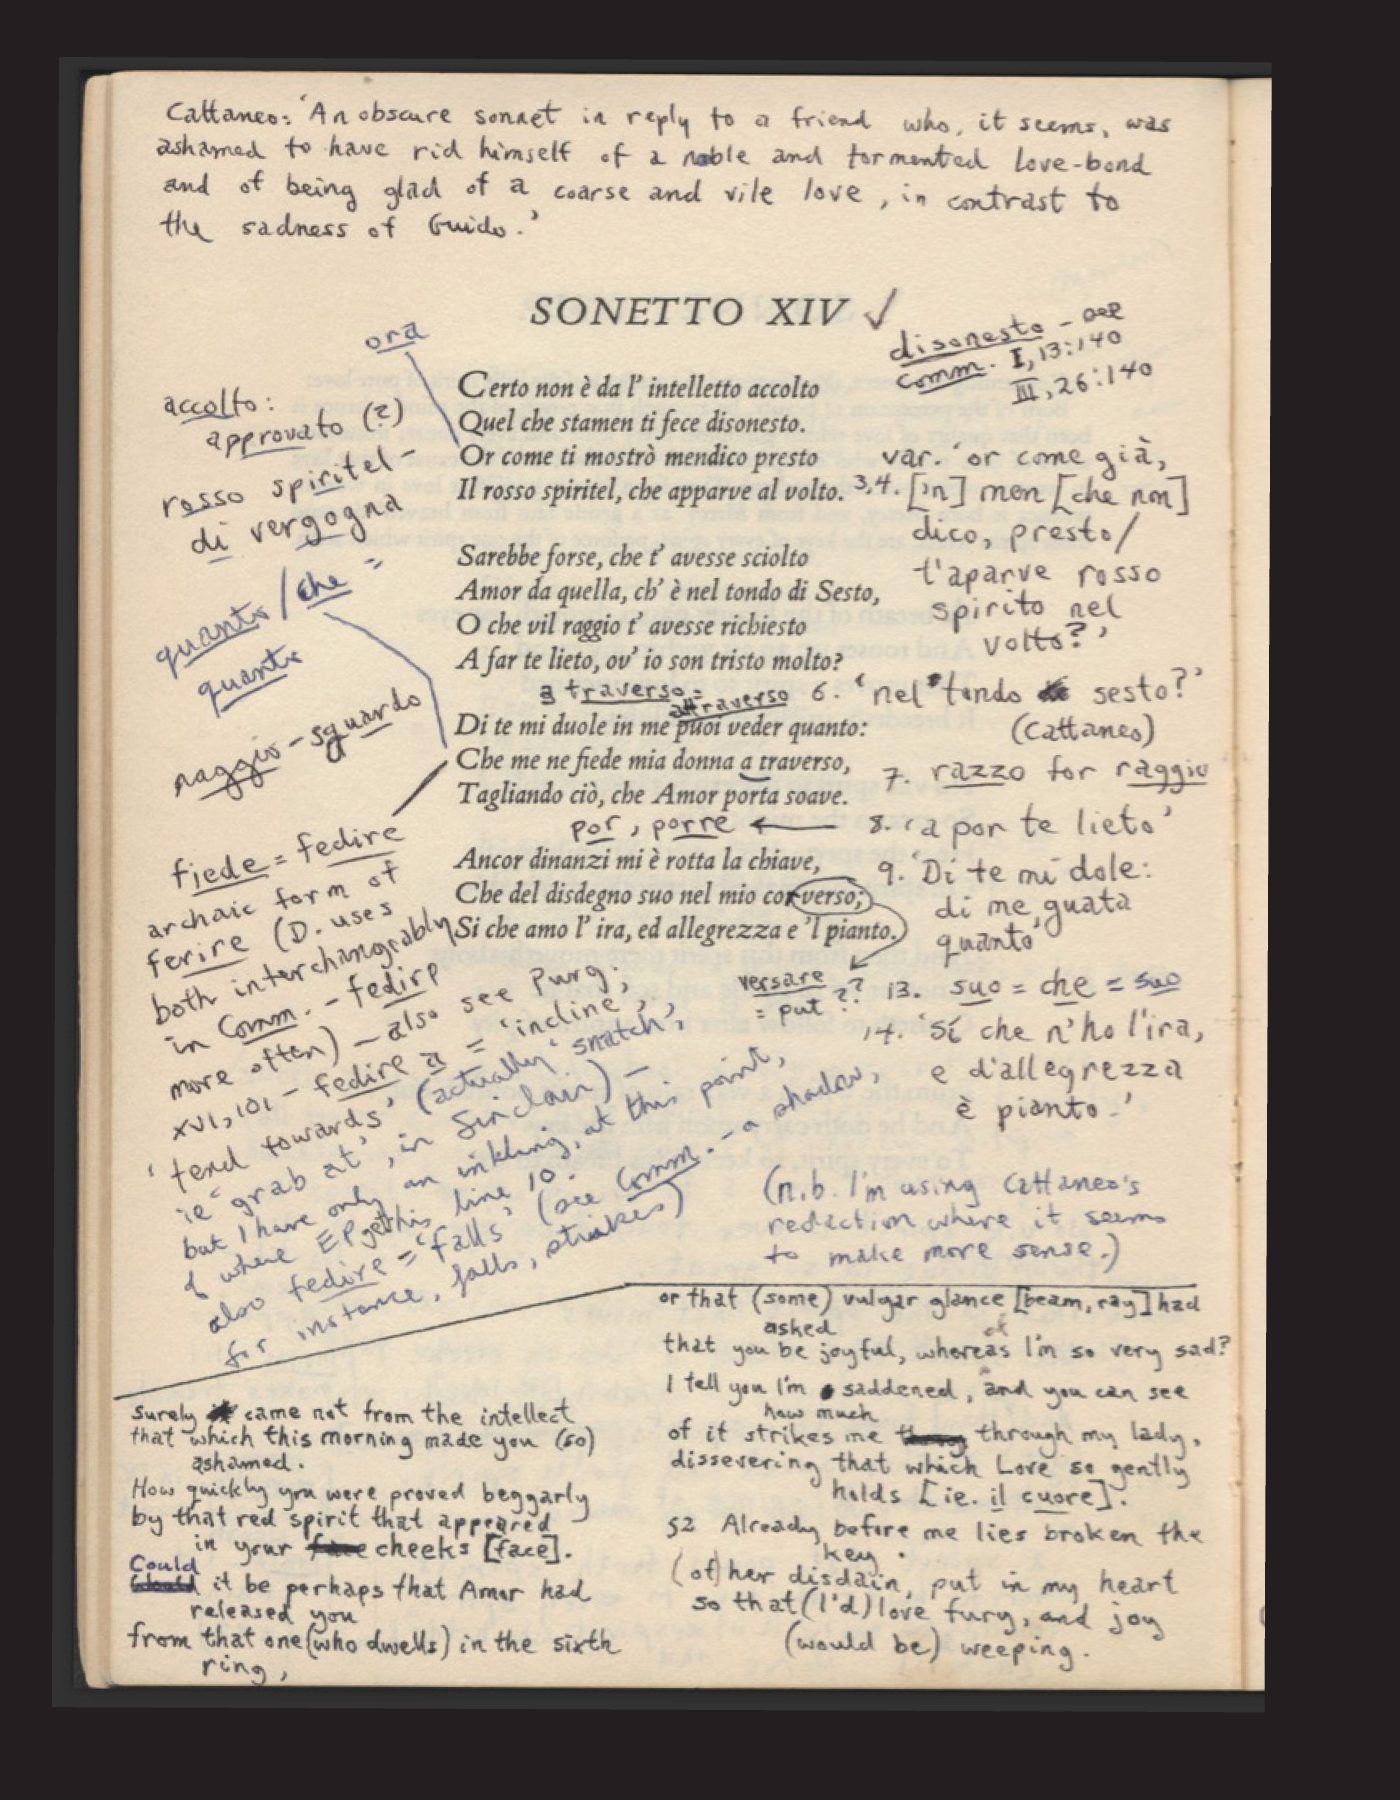 Cattaneo: 'An obscure sonnet in reply to a friend who, it seems, was
ashamed to have rid himself of a noble and tormented love-bond
and of being glad of a coarse and vile love, in contrast to
the sadness of Guido.'
SONETTO XIV ✓
disonesto - see
comm. I, 13:140
III, 26:140
ora
accolto:
approvato (?)
rosso spiritel -
di vergogna
quanto / che =
quanto
raggio - sguardo
Certo non è da l' intelletto accolto
Quel che stamen ti fece disonesto.
Or come ti mostrò mendico presto
Il rosso spiritel, che apparve al volto.
Sarebbe forse, che t' avesse sciolto
Amor da quella, ch' è nel tondo di Sesto,
O che vil raggio t' avesse richiesto
A far te lieto, ov' io son tristo molto?
a traverso =
attraverso
Di te mi duole in me puoi veder quanto:
Che me ne fiede mia donna a traverso,
Tagliando ciò, che Amor porta soave.
por, porre ←
Ancor dinanzi mi è rotta la chiave,
Che del disdegno suo nel mio cor verso;
Si che amo l' ira, ed allegrezza e 'l pianto.
versare
= put ??
var. 'or come già,
3,4. ['n] men [che non]
dico, presto/
t'aparve rosso
spirito nel
volto?'
6. 'nel tondo sesto?'
(Cattaneo)
7. razzo for raggio
8. 'a por te lieto'
9. 'Di te mi dole:
di me, guata
quanto'
13. suo = che = suo
14. 'Sí che n'ho l'ira,
e d'allegrezza
è pianto.'
(n.b. I'm using Cattaneo's
redaction where it seems
to make more sense.)
fiede = fedire
archaic form of
ferire (D. uses
both interchangeably
in Comm. - fedire
more often) - also see Purg;
XVI, 101 - fedire a = 'incline',
'tend towards' (actually 'snatch',
ie 'grab at', in Sinclair) -
but I have only an inkling, at this point,
of where EP gets this line 10.
also fedire = 'falls' (see Comm. - a shadow,
for instance, falls, strikes)
Surely came not from the intellect
that which this morning made you (so)
ashamed.
How quickly you were proved beggarly
by that red spirit that appeared
in your cheeks [face].
Could it be perhaps that Amor had
released you
from that one (who dwells) in the sixth
ring,
or that (some) vulgar glance [beam, ray] had
asked
that you be joyful, whereas I'm so very sad?
I tell you I'm saddened, and you can see
how much
of it strikes me through my lady,
dissevering that which Love so gently
holds [ie. il cuore].
Already before me lies broken the
key
(of) her disdain, put in my heart
so that (I'd) love fury, and joy
(would be) weeping.